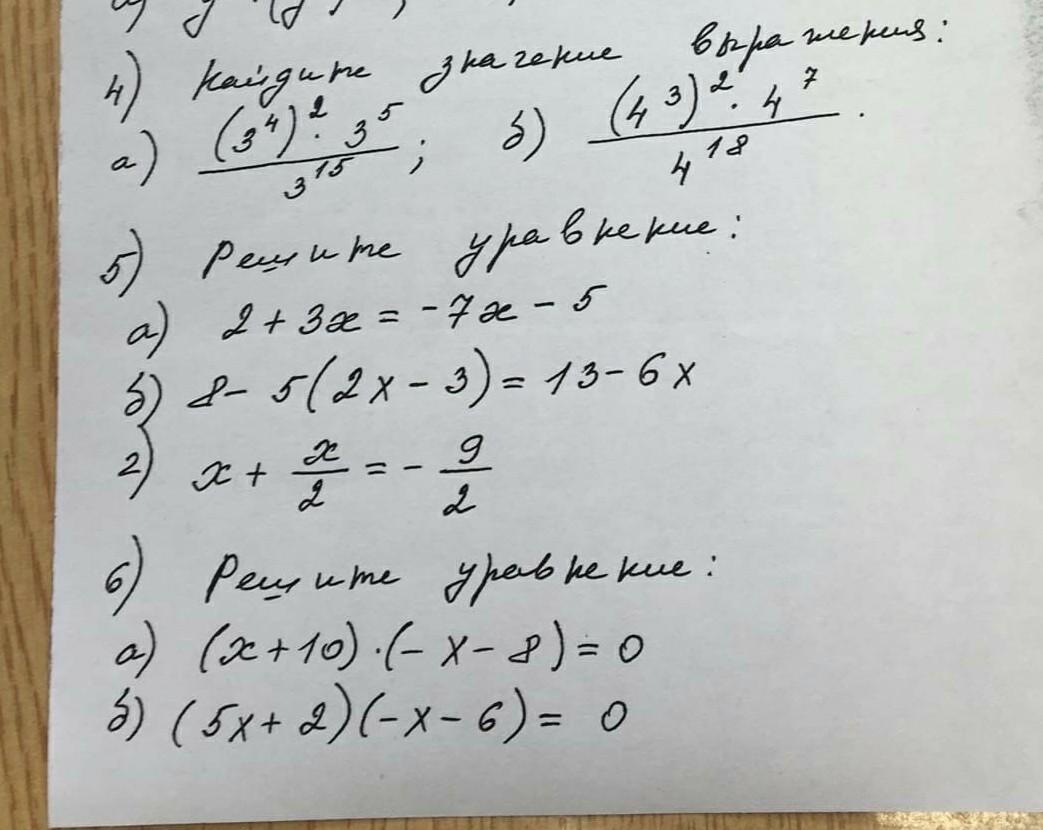 4) Найдите значение выражения:
а) (3^4)^2 · 3^5 / 3^15 ; б) (4^3)^2 · 4^7 / 4^18 .
5) Решите уравнение:
а) 2 + 3x = -7x - 5
б) 8 - 5(2x - 3) = 13 - 6x
г) x + x/2 = - 9/2
6) Решите уравнение:
а) (x + 10) · (- x - 8) = 0
б) (5x + 2)(-x - 6) = 0